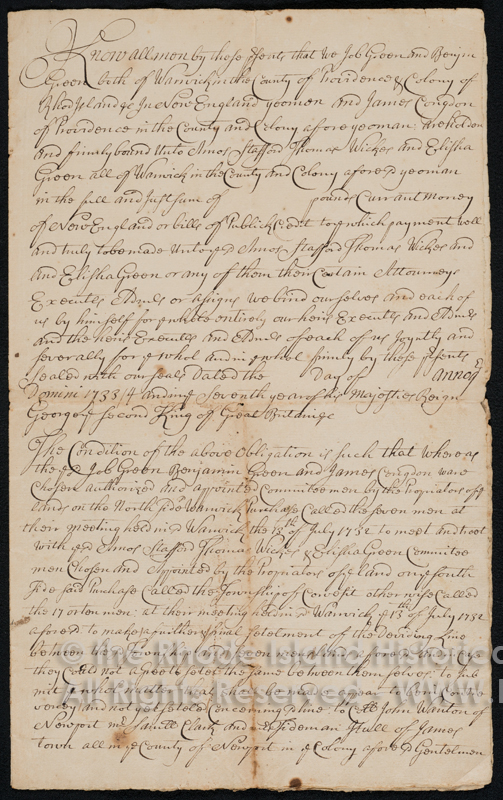 Know all men by these psents that we Job Green and Benjm
Green both of Warwick in the County of Providence & Colony of
Rhod Island &c In New England yeomen and James Congdon
of Providence in the County and Colony afore yeoman: are holden
and firmly bound Unto Amos Stafford Thomas Wickes and Elisha
Green all of Warwick in the County and Colony afored yeoman
in the full and Just sum of pounds Currant money
of New England or bills of Publick Credit to ye which payment well
and truly to be made Unto ye sd Amos Stafford Thomas Wickes and
and Elisha Green or any of them their Certain Attourneys
Executrs Admrs or assigns we bind ourselves and each of
us by himself for ye whole entirely our heirs Executrs and Admrs
and the heirs Executrs and Admrs of each of us Joyntly and
severally for ye whol and in ye whol firmly by these psents
sealed with our seals Dated the Day of annoq
Domini 1733/4 and in ye Seventh year of his Majesties Reign
George ye Second King of Great Brittain &c
The Condition of the above Obligation is such that whereas
the sd Job Green Benjamin Green and James Congdon ware
Chosen authorized and appointed Committee men by the Propriators of ye
lands on the North side Warwick Purchase Called the seven men at
their meeting held in sd Warwick the 13th of July 1732 to meet and treet
with sd Amos Stafford Thomas Wickes & Elisha Green Committee
men Chosen and Appointed by the Propriators of ye land on ye south
side said Purchase Called the Township of Cowesit otherwise Called
the 17 or ten men: at their meeting held in sd Warwick ye 13th of July 1732
afored to make a further & final setelment of the Deviding Line
between the Township and seven mens lands afored and if
they Could not agree to setel the same between themselves: to sub
mit ye whole matter
very and not yet seteled concerning sd line to Coll John Wanton of
Newport mr Samll Clark and Tideman Hull of James
town all in ye County of Newport in ye Colony afored Gentelmen
© The Rhode Island Historical
All Rights Reserved. WWW.